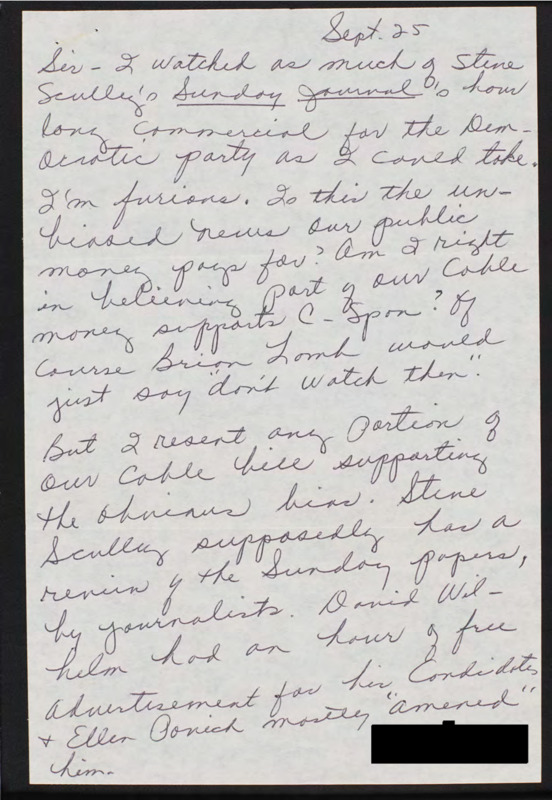 Sept. 25
Sir - I watched as much of Steve
Scully's Sunday Journal's hour
long commercial for the Dem-
ocratic party as I could take.
I'm furious. Is this the un-
biased news our public
money pays for? Am I right
in believing part of our Cable
money supports C-Span? Of
course Brian Lamb would
just say "don't watch then".
But I resent any portion of
our Cable bill supporting
the obvious bias. Steve
Scully supposedly has a
review of the Sunday papers,
by journalists. David Wil-
helm had an hour of free
advertisement for his Candidates
+ Ellen Ponich mostly "amened"
him.